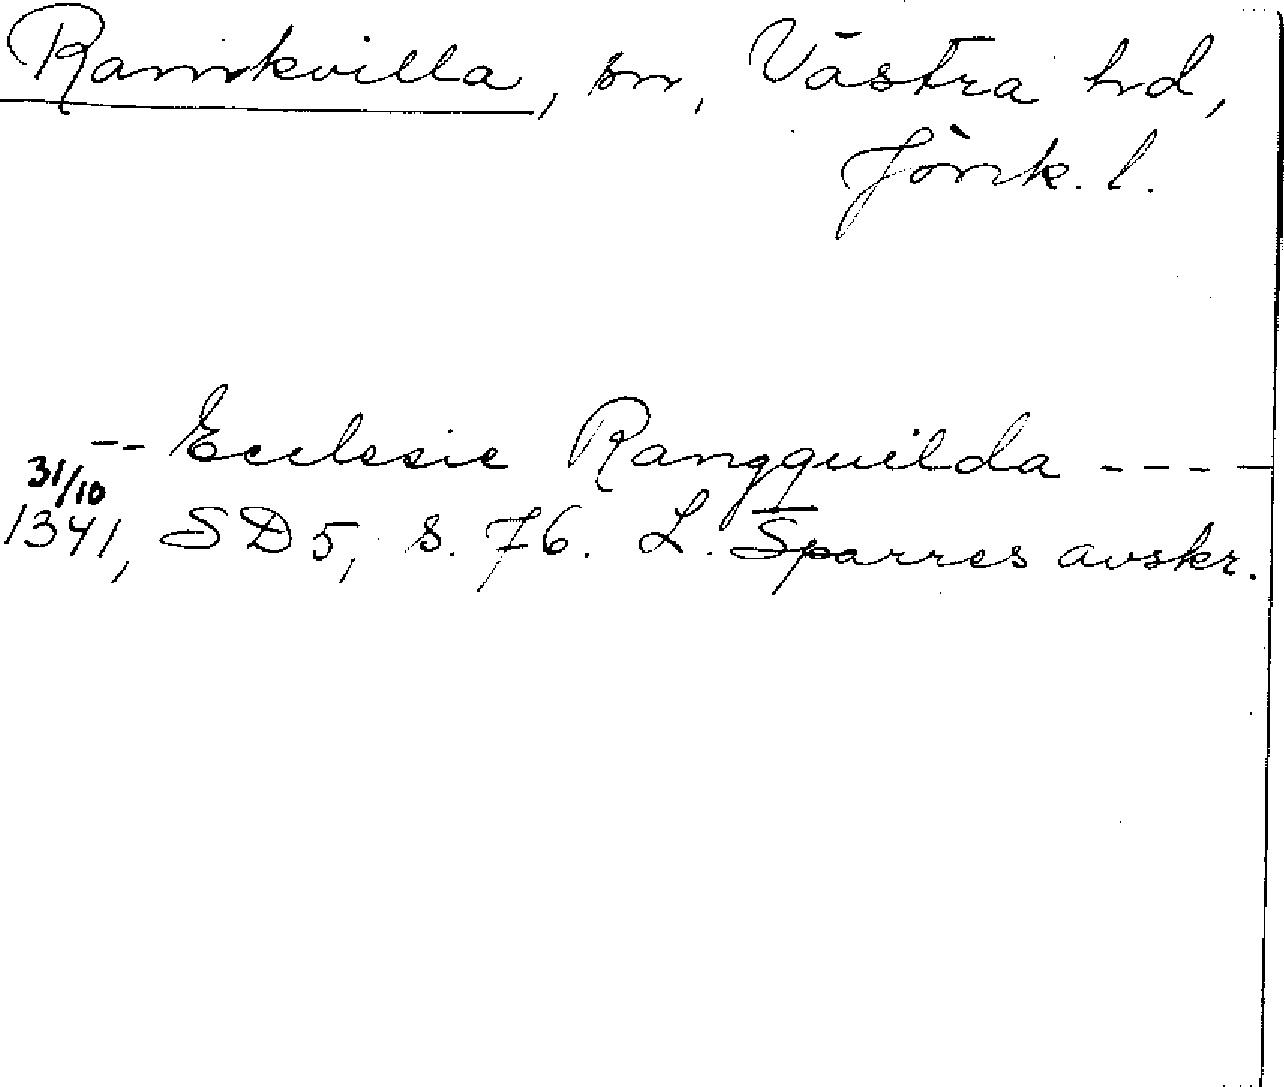 Ramkvilla, sn, Västra hd,
Jönk. l.
-- Ecclesie Rangquilda ----
31/10
1341, SD5, s. 76. L. Sparres avskr.